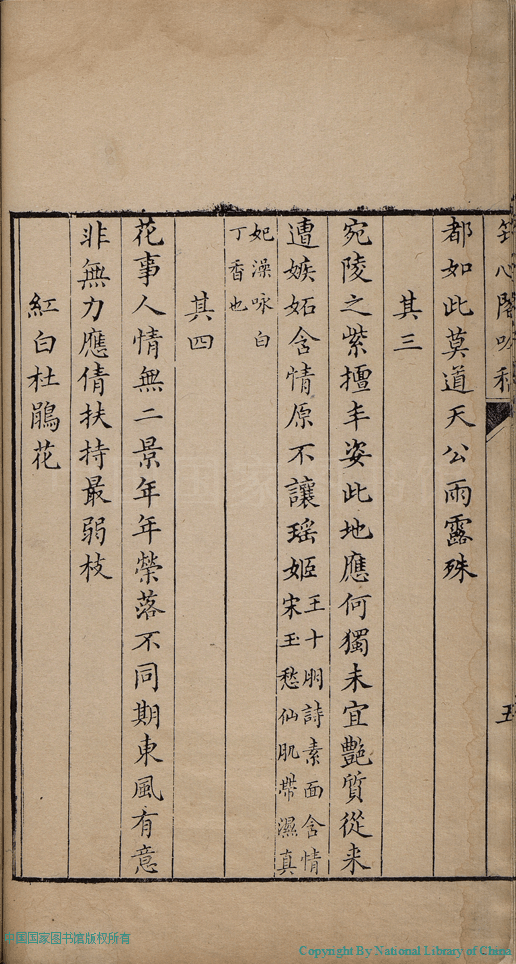 心閣吟稿
五
都如此莫道天公雨露殊
其三
宛陵之紫擅丰姿此地應何獨未宜艷質從来
遭嫉妬含情原不讓瑶姬
王十朋詩素面含情
宋玉愁仙肌帶濕真
妃澡咏白
丁香也
其四
花事人情無二景年年榮落不同期東風有意
非無力應倩扶持最弱枝
紅白杜鵑花
中国国家图书馆版权所有
Copyright By National Library of China